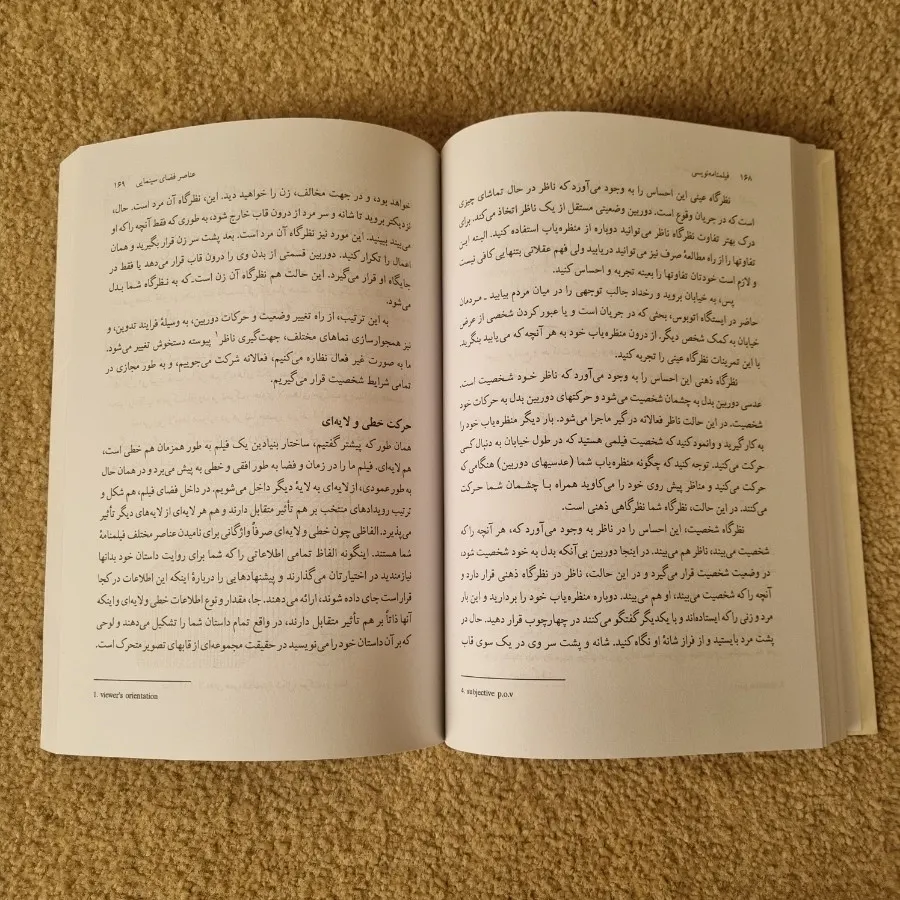 ۱۶۸ فیلمنامه‌نویسی
نظرگاه عینی این احساس را به وجود می‌آورد که ناظر در حال تماشای چیزی
است که در جریان وقوع است. دوربین وضعیتی مستقل از یک ناظر اتخاذ می‌کند. برای
درک بهتر تفاوت نظرگاه ناظر می‌توانید دوباره از منظره‌یاب استفاده کنید. البته این
تفاوتها را از راه مطالعهٔ صرف نیز می‌توانید دریابید ولی فهم عقلانی بتنهایی کافی نیست
و لازم است خودتان تفاوتها را بعینه تجربه و احساس کنید.
پس، به خیابان بروید و رخداد جالب توجهی را در میان مردم بیابید ـ مردمان
حاضر در ایستگاه اتوبوس، بحثی که در جریان است و یا عبور کردن شخصی از عرض
خیابان به کمک شخص دیگر. از درون منظره‌یاب خود به هر آنچه که می‌یابید بنگرید.
با این تمرینات نظرگاه عینی را تجربه کنید.
نظرگاه ذهنی این احساس را به وجود می‌آورد که ناظر خود شخصیت است.
عدسی دوربین بدل به چشمان شخصیت می‌شود و حرکتهای دوربین بدل به حرکات خود
شخصیت. در این حالت ناظر فعالانه در گیر ماجرا می‌شود. بار دیگر منظره‌یاب خود را
به کار گیرید و وانمود کنید که شخصیت فیلمی هستید که در طول خیابان به دنبال کسی
حرکت می‌کنید. توجه کنید که چگونه منظره‌یاب شما (عدسیهای دوربین) هنگامی که
حرکت می‌کنید و مناظر پیش روی خود را می‌کاوید همراه با چشمان شما حرکت
می‌کنند. در این حالت، نظرگاه شما نظرگاهی ذهنی است.
نظرگاه شخصیت، این احساس را در ناظر به وجود می‌آورد که، هر آنچه را که
شخصیت می‌بیند، ناظر هم می‌بیند. در اینجا دوربین بی‌آنکه بدل به خود شخصیت شود،
در وضعیت شخصیت قرار می‌گیرد و در این حالت، ناظر در نظرگاه ذهنی قرار دارد و
آنچه را که شخصیت می‌بیند، او هم می‌بیند. دوباره منظره‌یاب خود را بردارید و این بار
مرد و زنی را که ایستاده‌اند و با یکدیگر گفتگو می‌کنند در چهارچوب قرار دهید. حال در
پشت مرد بایستید و از فراز شانهٔ او نگاه کنید. شانه و پشت سر وی در یک سوی قاب
4. subjective p.o.v
عناصر فضای سینمایی ۱۶۹
خواهد بود، و در جهت مخالف، زن را خواهید دید. این، نظرگاه آن مرد است. حال،
نزدیکتر بروید تا شانه و سر مرد از درون قاب خارج شود، به طوری که فقط آنچه را که او
می‌بیند ببینید. این مورد نیز نظرگاه آن مرد است. بعد پشت سر زن قرار بگیرید و همان
اعمال را تکرار کنید. دوربین قسمتی از بدن وی را درون قاب قرار می‌دهد یا فقط در
جایگاه او قرار می‌گیرد. این حالت هم نظرگاه آن زن است که به نظرگاه شما بدل
می‌شود.
به این ترتیب، از راه تغییر وضعیت و حرکات دوربین، به وسیلهٔ فرایند تدوین، و
نیز همجوارسازی نماهای مختلف، جهت‌گیری ناظر۱ پیوسته دستخوش تغییر می‌شود.
ما به صورت غیر فعال نظاره می‌کنیم، فعالانه شرکت می‌جوییم، و به طور مجازی در
تمامی شرایط شخصیت قرار می‌گیریم.
حرکت خطی و لایه‌ای
همان طور که پیشتر گفتیم، ساختار بنیادین یک فیلم به طور همزمان هم خطی است،
هم لایه‌ای. فیلم ما را در زمان و فضا به طور افقی و خطی به پیش می‌برد و در همان حال
به طور عمودی، از لایه‌ای به لایهٔ دیگر داخل می‌شویم. در داخل فضای فیلم، هم شکل و
ترتیب رویدادهای منتخب بر هم تأثیر متقابل دارند و هم هر لایه‌ای از لایه‌های دیگر تأثیر
می‌پذیرد. الفاظی چون خطی و لایه‌ای صرفاً واژگانی برای نامیدن عناصر مختلف فیلمنامهٔ
شما هستند. اینگونه الفاظ تمامی اطلاعاتی را که شما برای روایت داستان خود بدانها
نیازمندید در اختیارتان می‌گذارند و پیشنهادهایی را دربارهٔ اینکه این اطلاعات در کجا
قرار است جای داده شوند، ارائه می‌دهند. جا، مقدار و نوع اطلاعات خطی ولایه‌ای و اینکه
آنها ذاتاً بر هم تأثیر متقابل دارند، در واقع تمام داستان شما را تشکیل می‌دهند و لوحی
که بر آن داستان خود را می‌نویسید در حقیقت مجموعه‌ای از قابهای تصویر متحرک است.
1. viewer's orientation